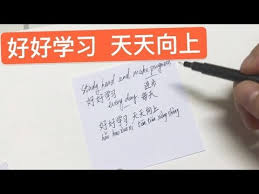 好好学习 天天向上
Study hard and make progress
进步
好好学习
every day.
每天
好好学习 天天向上
hǎo hǎo xué xí tiān tiān xiàng shàng